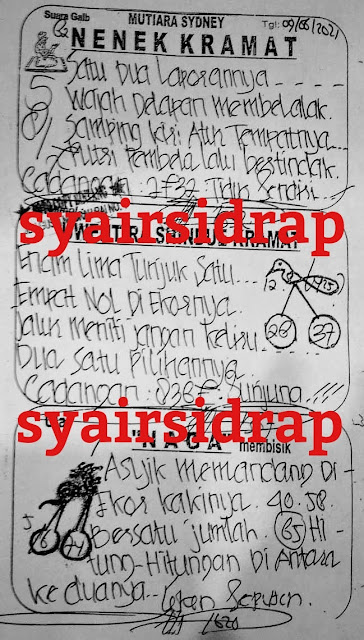 Suara Gaib
MUTIARA SYDNEY
Tgl: 09/06/2021
NENEK KRAMAT
Satu Dua Laporannya
Wajah Delapan membelalak.
Samping kiri Atuh Tempatnya
Putri Pembela lalu bertindak.
Cadangan: 2F32
syairsidrap
KRAMAT
Enam Lima Tunjuk Satu
12
Empat NOL Di Ekornya.
28 37
Jalur meniti jangan keliru
Dua Satu Pilihannya
Cadangan:
syairsidrap
"NAGA" membisik
Asyik memandang Di
Ekor kakinya. 40.58.
Bersatu jumlah. 65 Hi
tung-Hitungan Di Antara
ke duanya..
1620